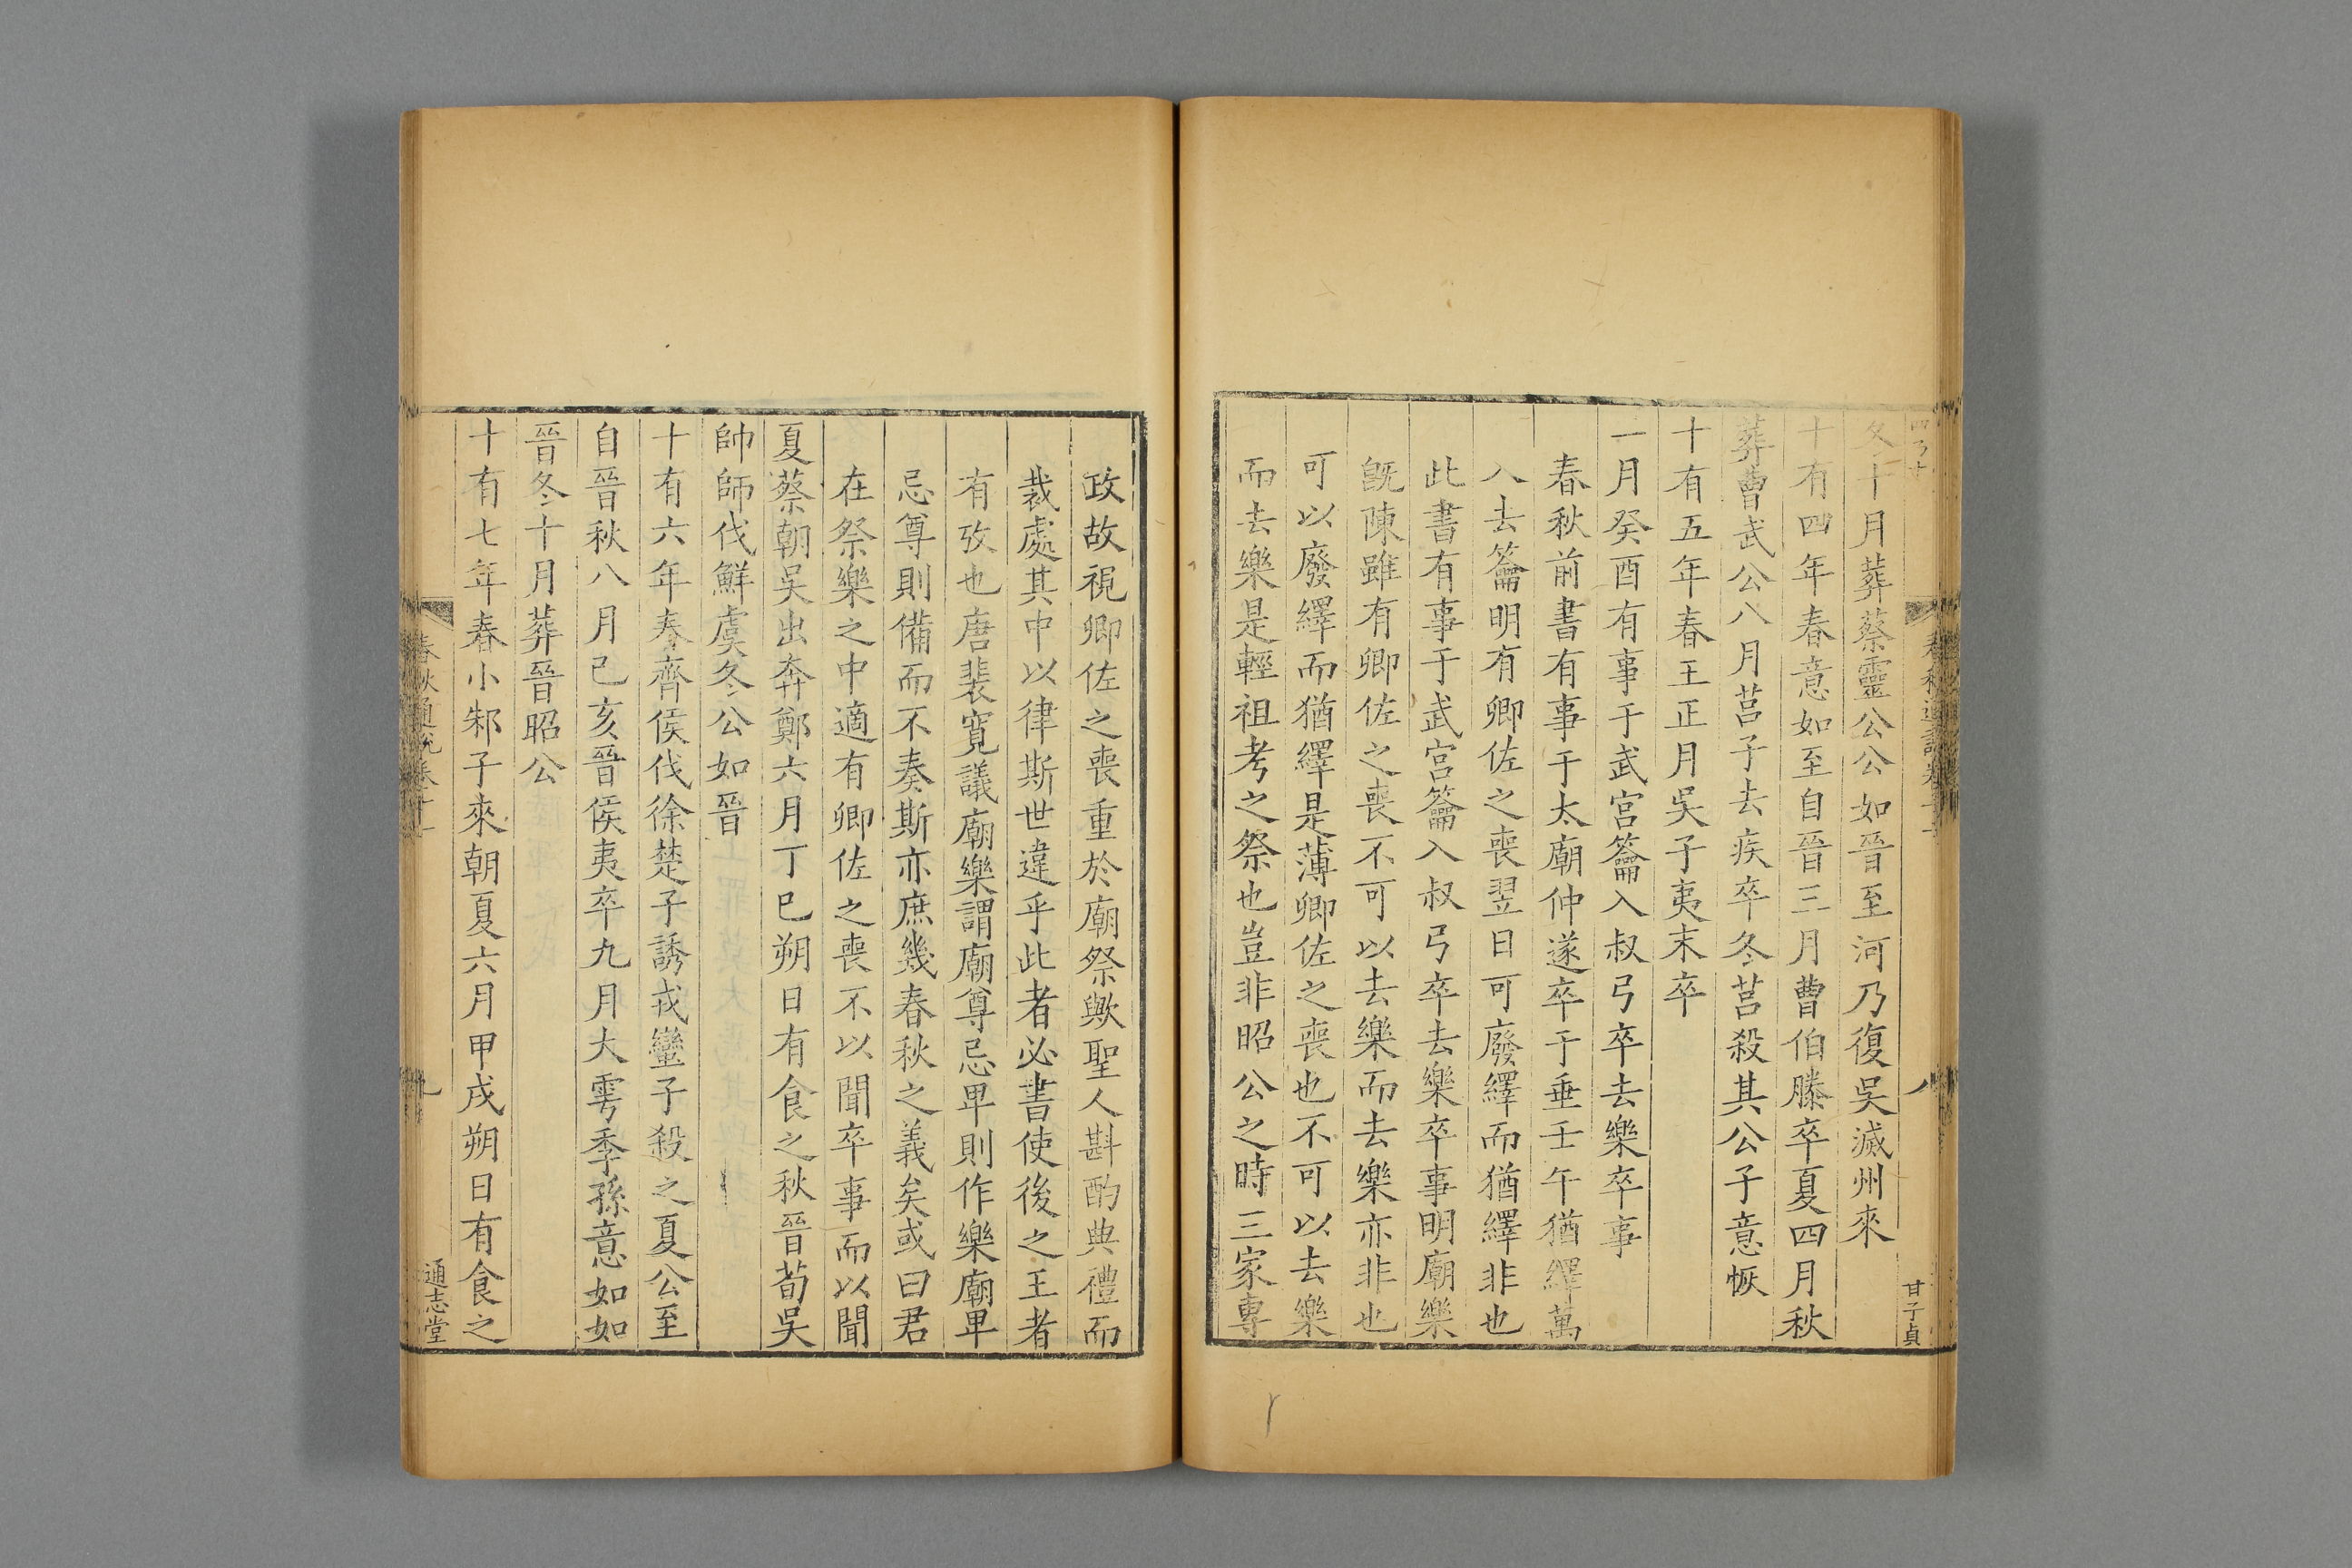 冬十月葬蔡靈公公如晉至河乃復吳滅州來
十有四年春意如至自晉三月曹伯滕卒夏四月秋
葬曹武公八月莒子去疾卒冬莒殺其公子意恢
十有五年春王正月吳子夷末卒
一月癸酉有事于武宮籥入叔弓卒去樂卒事
春秋前書有事于太廟仲遂卒于垂壬午猶繹萬
入去籥明有卿佐之喪翌日可廢繹而猶繹非也
此書有事于武宮籥入叔弓卒去樂卒事明廟樂
旣陳雖有卿佐之喪不可以去樂而去樂亦非也
可以廢繹而猶繹是薄卿佐之喪也不可以去樂
而去樂是輕祖考之祭也豈非昭公之時三家專
甘子貞
政故視卿佐之喪重於廟祭歟聖人斟酌典禮而
裁處其中以律斯世違乎此者必書使後之王者
有攷也唐裴寬議廟樂謂廟尊忌卑則作樂廟卑
忌尊則備而不奏斯亦庶幾春秋之義矣或曰君
在祭樂之中適有卿佐之喪不以聞卒事而以聞
夏蔡朝吳出奔鄭六月丁巳朔日有食之秋晉荀吳
帥師伐鮮虞冬公如晉
十有六年春齊侯伐徐楚子誘戎蠻子殺之夏公至
自晉秋八月己亥晉侯夷卒九月大雩季孫意如如
晉冬十月葬晉昭公
十有七年春小邾子來朝夏六月甲戌朔日有食之
春秋通說卷十一
通志堂